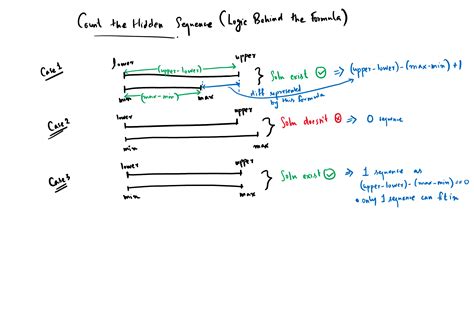 Count the Hidden Sequence (Logic Behind the Formula)
Case 1
lower upper
(upper-lower)
Soln exist ⇒ (upper-lower)-(max-min)+1
min (max-min) max
diff represented
by this formula
Case 2
lower upper
Soln doesn't ⇒ 0 sequence
min max
Case 3
lower upper
Soln exist ⇒ 1 sequence as
(upper-lower)-(max-min)=0
min max
• only 1 sequence can fit in